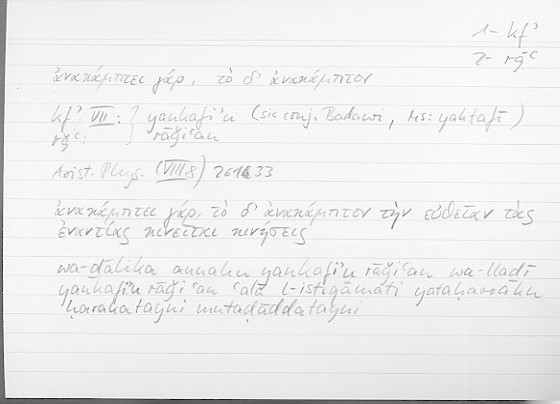 1- kfʾ
2- rǧʿ
ἀνακάμπτει γάρ, τὸ δ' ἀνακάμπτον
kfʾ VII : } yankafiʾu (sic conj. Badawi, Ms: yaktafī)
rǧʿ : rāǧiʿan
Arist. Phys. (VIII 8) 261b33
ἀνακάμπτει γάρ, τὸ δ' ἀνακάμπτον τὴν εὐθεῖαν τὰς
ἐναντίας κινεῖται κινήσεις
wa-ḏālika annahu yankafiʾu rāǧiʿan wa-llaḏī
yankafiʾu rāǧiʿan ʿalā l-istiqāmati yataḥarraku
ḥarakatayni mutaḍāddatayni